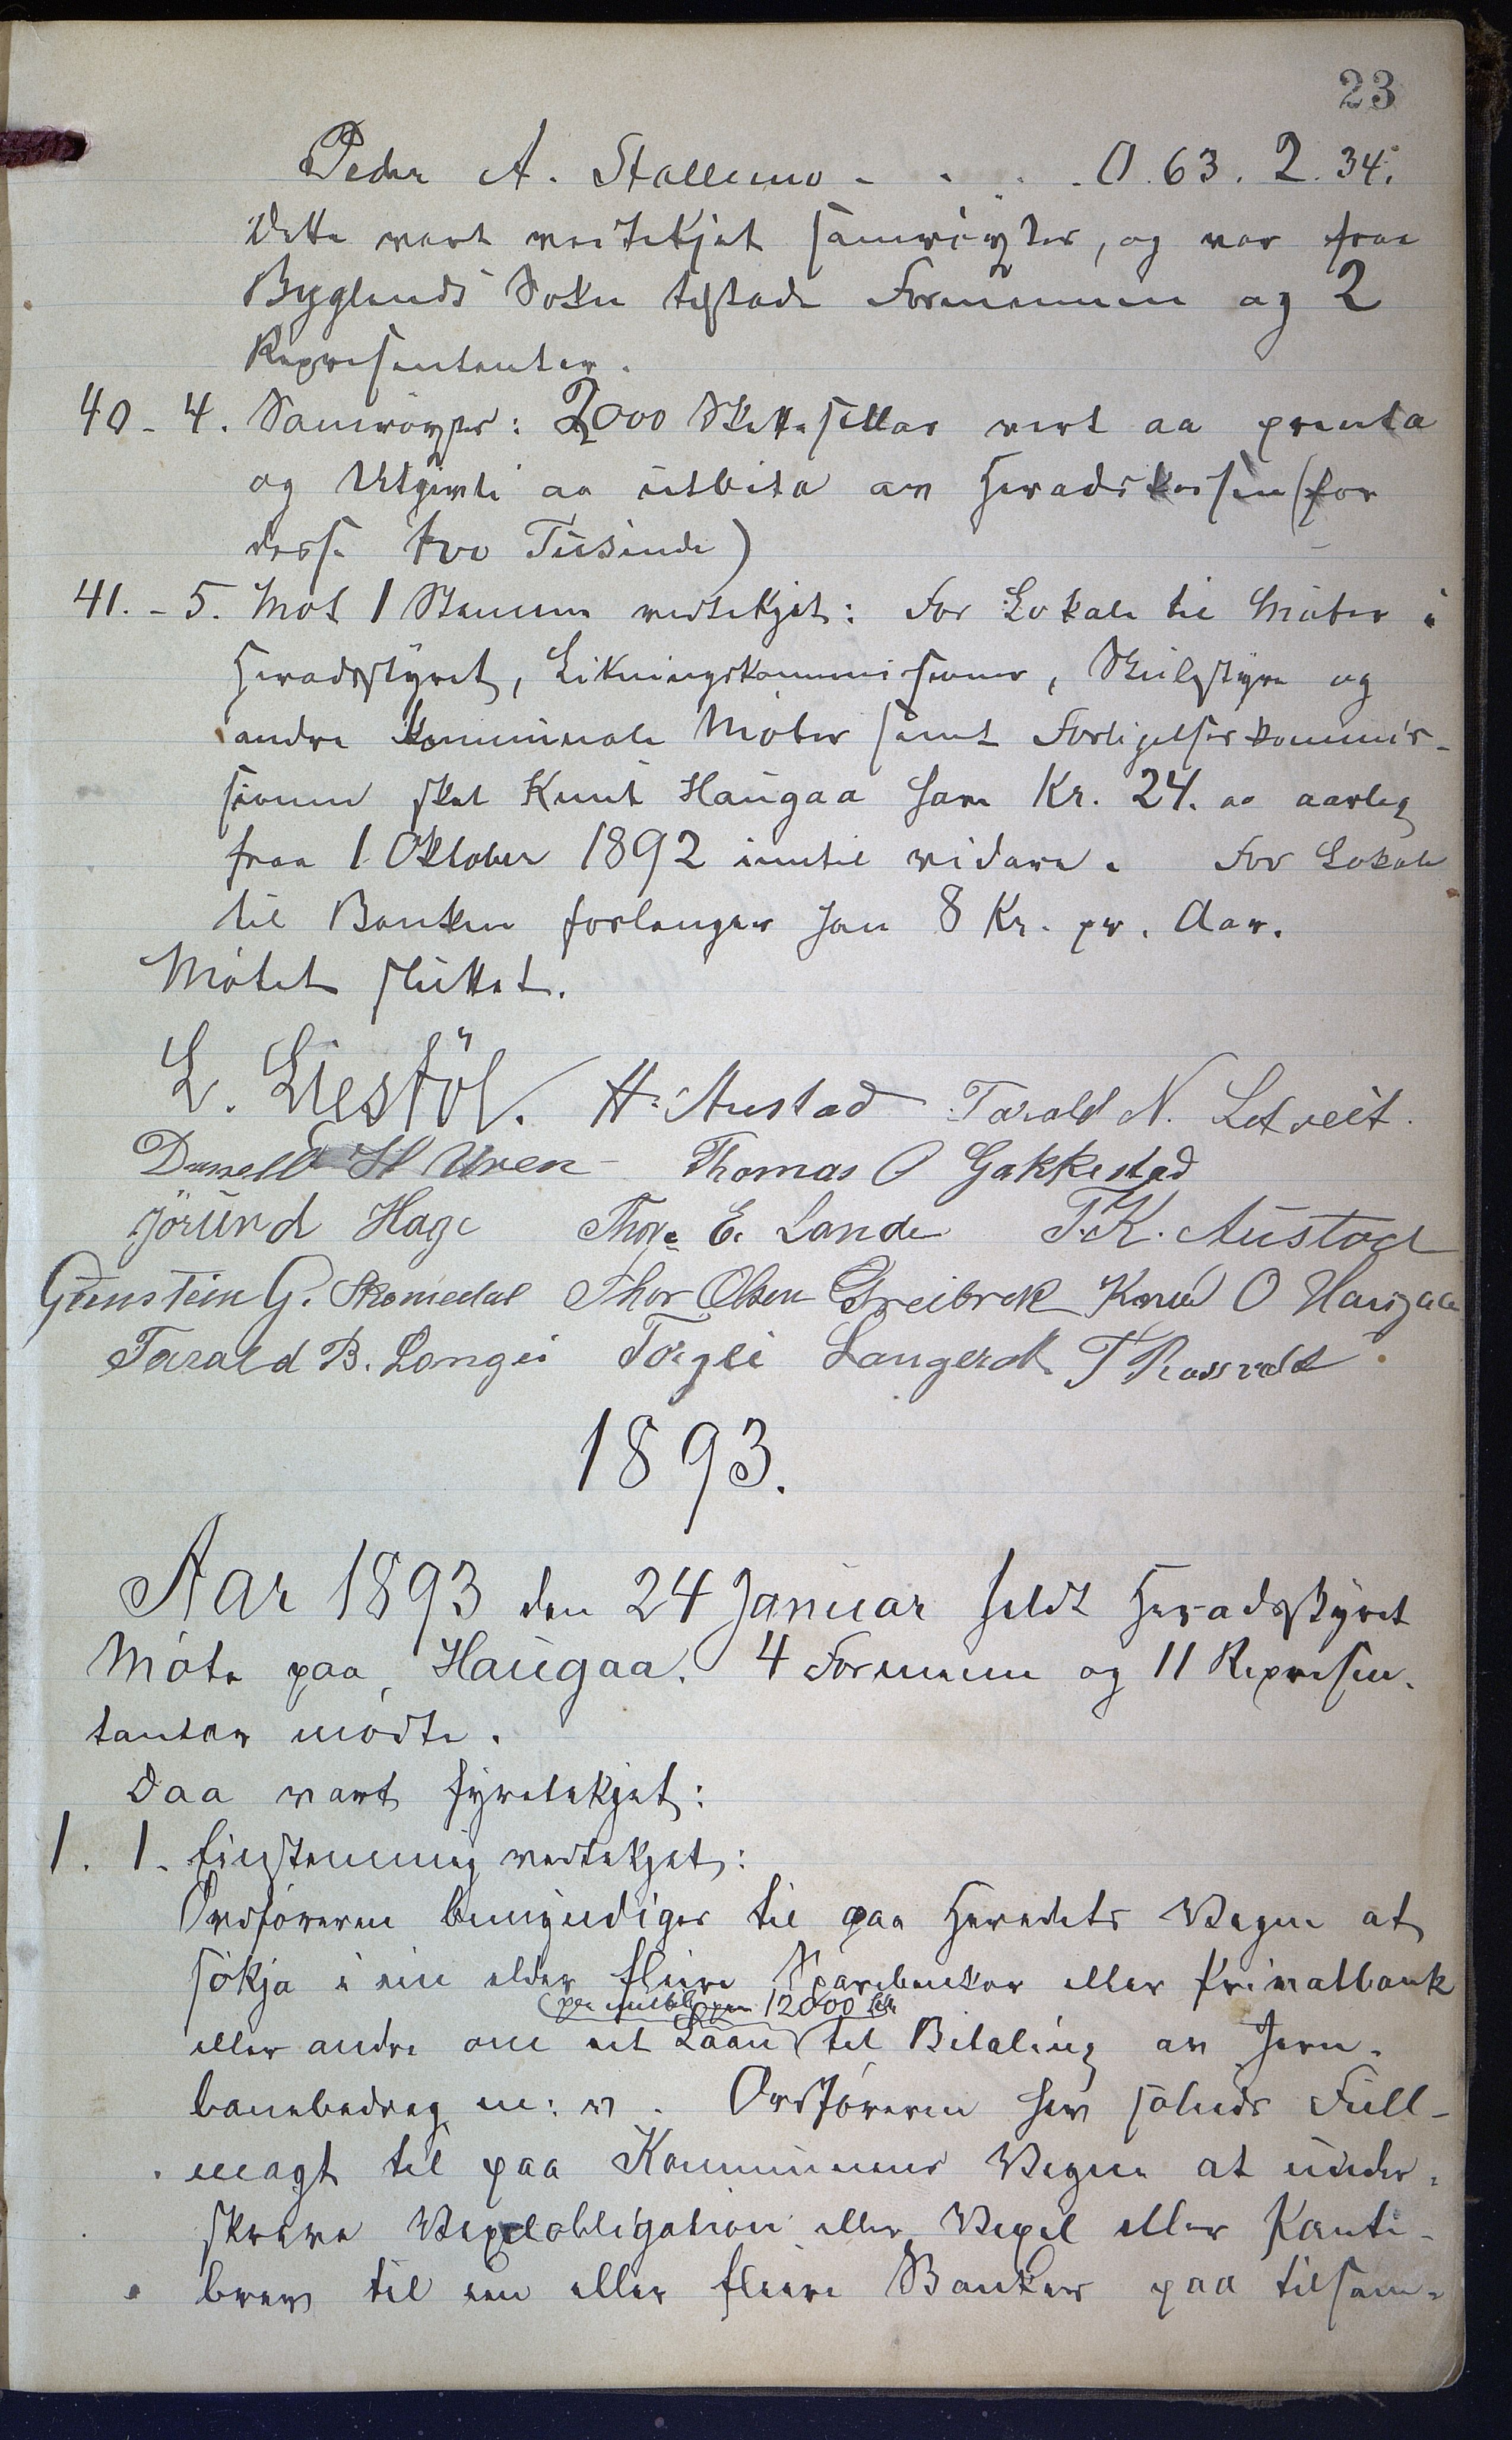 23
Peder A. Stallemo - - . . 0. 63. 2. 34.
Dette vart vedtekjet samrøystes, og var fraa
Byglands Sokn tilstade Formannen og 2
Representanter.
40 - 4. Samrøystes: 2000 Skattesetlar vert aa prenta
og Utgivti aa utbeta av Heradskassen (for
desse tvo Tusinde)
41. - 5. Mot 1 Stemme vedtekjet: For Lokale til Møter i
Heradsstyret, Likningskommissionen, Skulestyre og
andre kommunale Møter samt Forligelseskommis-
sionen skal Knut Haugaa hava Kr. 24. aarleg
fraa 1 Oktober 1892 inntil vidare. For Lokale
til Banken forlanger han 8 Kr. pr. Aar.
Møtet sluttet.
L. Liestöl. H. Austad Tarald N. Lotveit.
H Uren Thomas O Gakkestad
Jörund Hage E. Lande T.K. Austad
Gunstein G. Skomedal Thor Olsen Greibrok Knud O Haugaa
Tarald B. Longei Torgei Langerak T Rosseveld
1893.
Aar 1893 den 24 Januar heldt Heradsstyret
Møte paa Haugaa. 4 Formenn og 11 Represen-
tanter mødte.
Daa vart fyretekjet:
1. 1. Einstemmig vedtekjet:
Ordføreren bemyndiges til paa Heradets Vegne at
søkja i ein elder fleire Sparebanker eller Privatbank
12000
eller andre om eit Laan til Betaling av Jern-
banebedrag m: v. Ordføreren hev soleids Full-
magt til paa Kommunens Vegne at under-
skrive Vexelobligation eller Vexel eller Panti-
brev til ein eller fleire Banker paa tilsam-